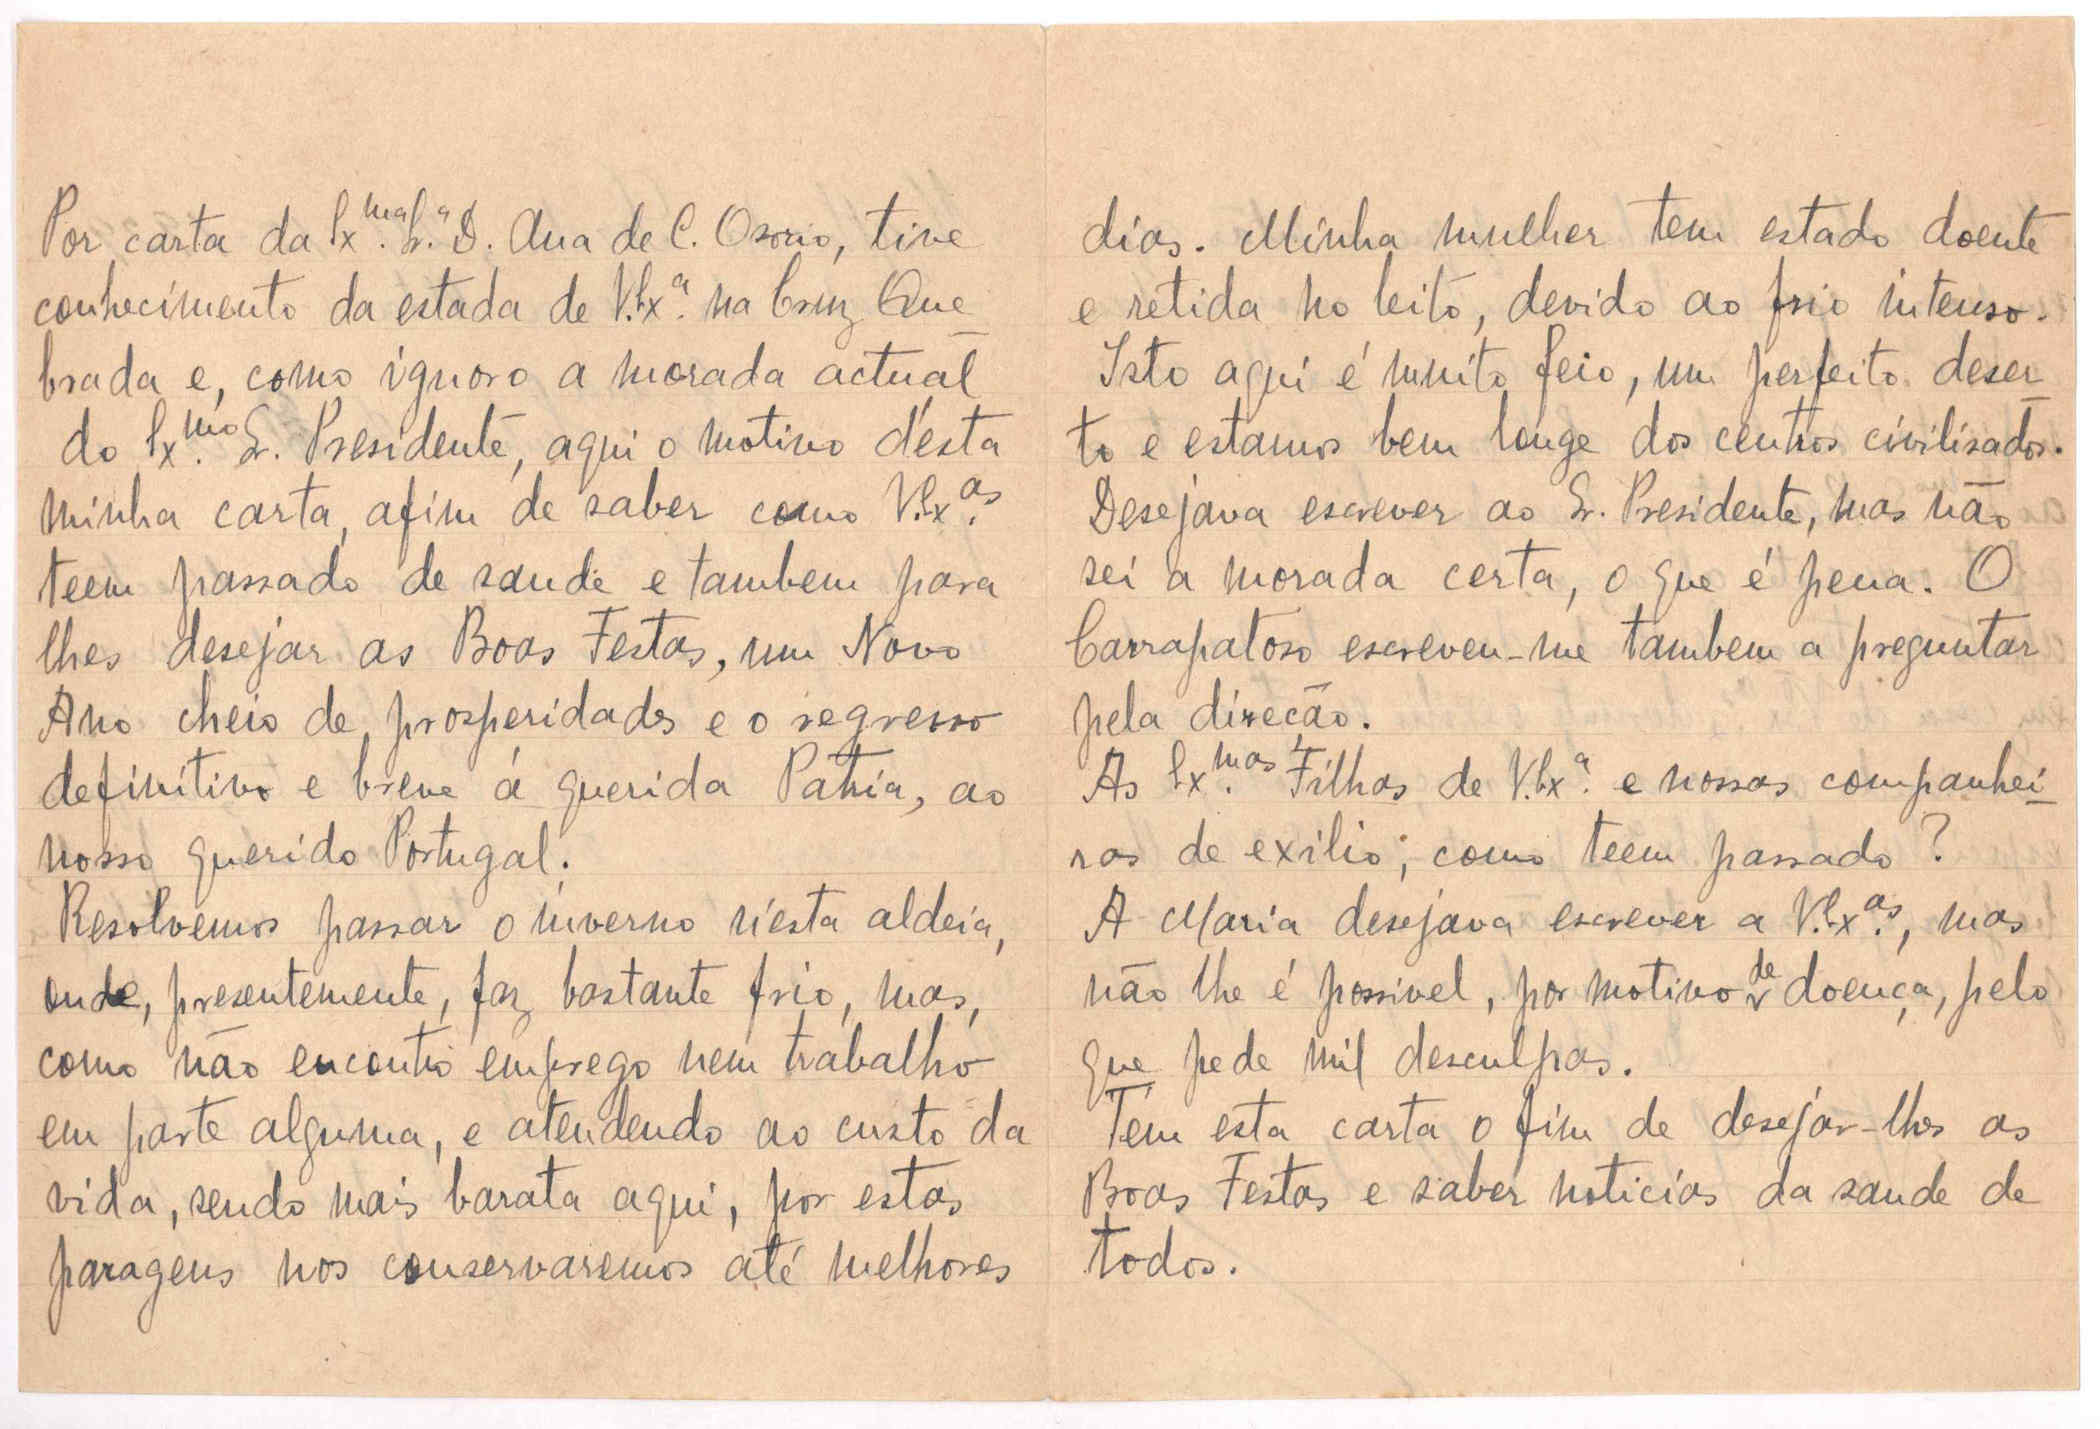 Por carta da Ex.ma Sr.a D. Ana de C. Osorio, tive
conhecimento da estada de V.Ex.a na Cruz Que
brada e, como ignoro a morada actual
do Ex.mo Sr. Presidente, aqui o motivo d'esta
minha carta, afim de saber como V.Ex.as
teem passado de saude e tambem para
lhes desejar as Boas Festas, um Novo
Ano cheio de prosperidades e o regresso
definitivo e breve á querida Patria, ao
nosso querido Portugal.
Resolvemos passar o inverno n'esta aldeia,
onde, presentemente, faz bastante frio, mas,
como não encontro emprego nem trabalho
em parte alguma, e atendendo ao custo da
vida, sendo mais barata aqui, por estas
paragens nos conservaremos até melhores
dias. Minha mulher tem estado doente
e retida no leito, devido ao frio intenso.
Isto aqui é muito feio, um perfeito deser
to e estamos bem longe dos centros civilisados.
Desejava escrever ao Sr. Presidente, mas não
sei a morada certa, o que é pena. O
Carrapatoso escreveu-me tambem a preguntar
pela direcção.
As Ex.mas Filhas de V.Ex.a e nossas companhei-
ras de exilio; como teem passado?
A Maria desejava escrever a V.Ex.as, mas
não lhe é possivel, por motivo de doença, pelo
que pede mil desculpas.
Tem esta carta o fim de desejar-lhes as
Boas Festas e saber noticias da saude de
todos.